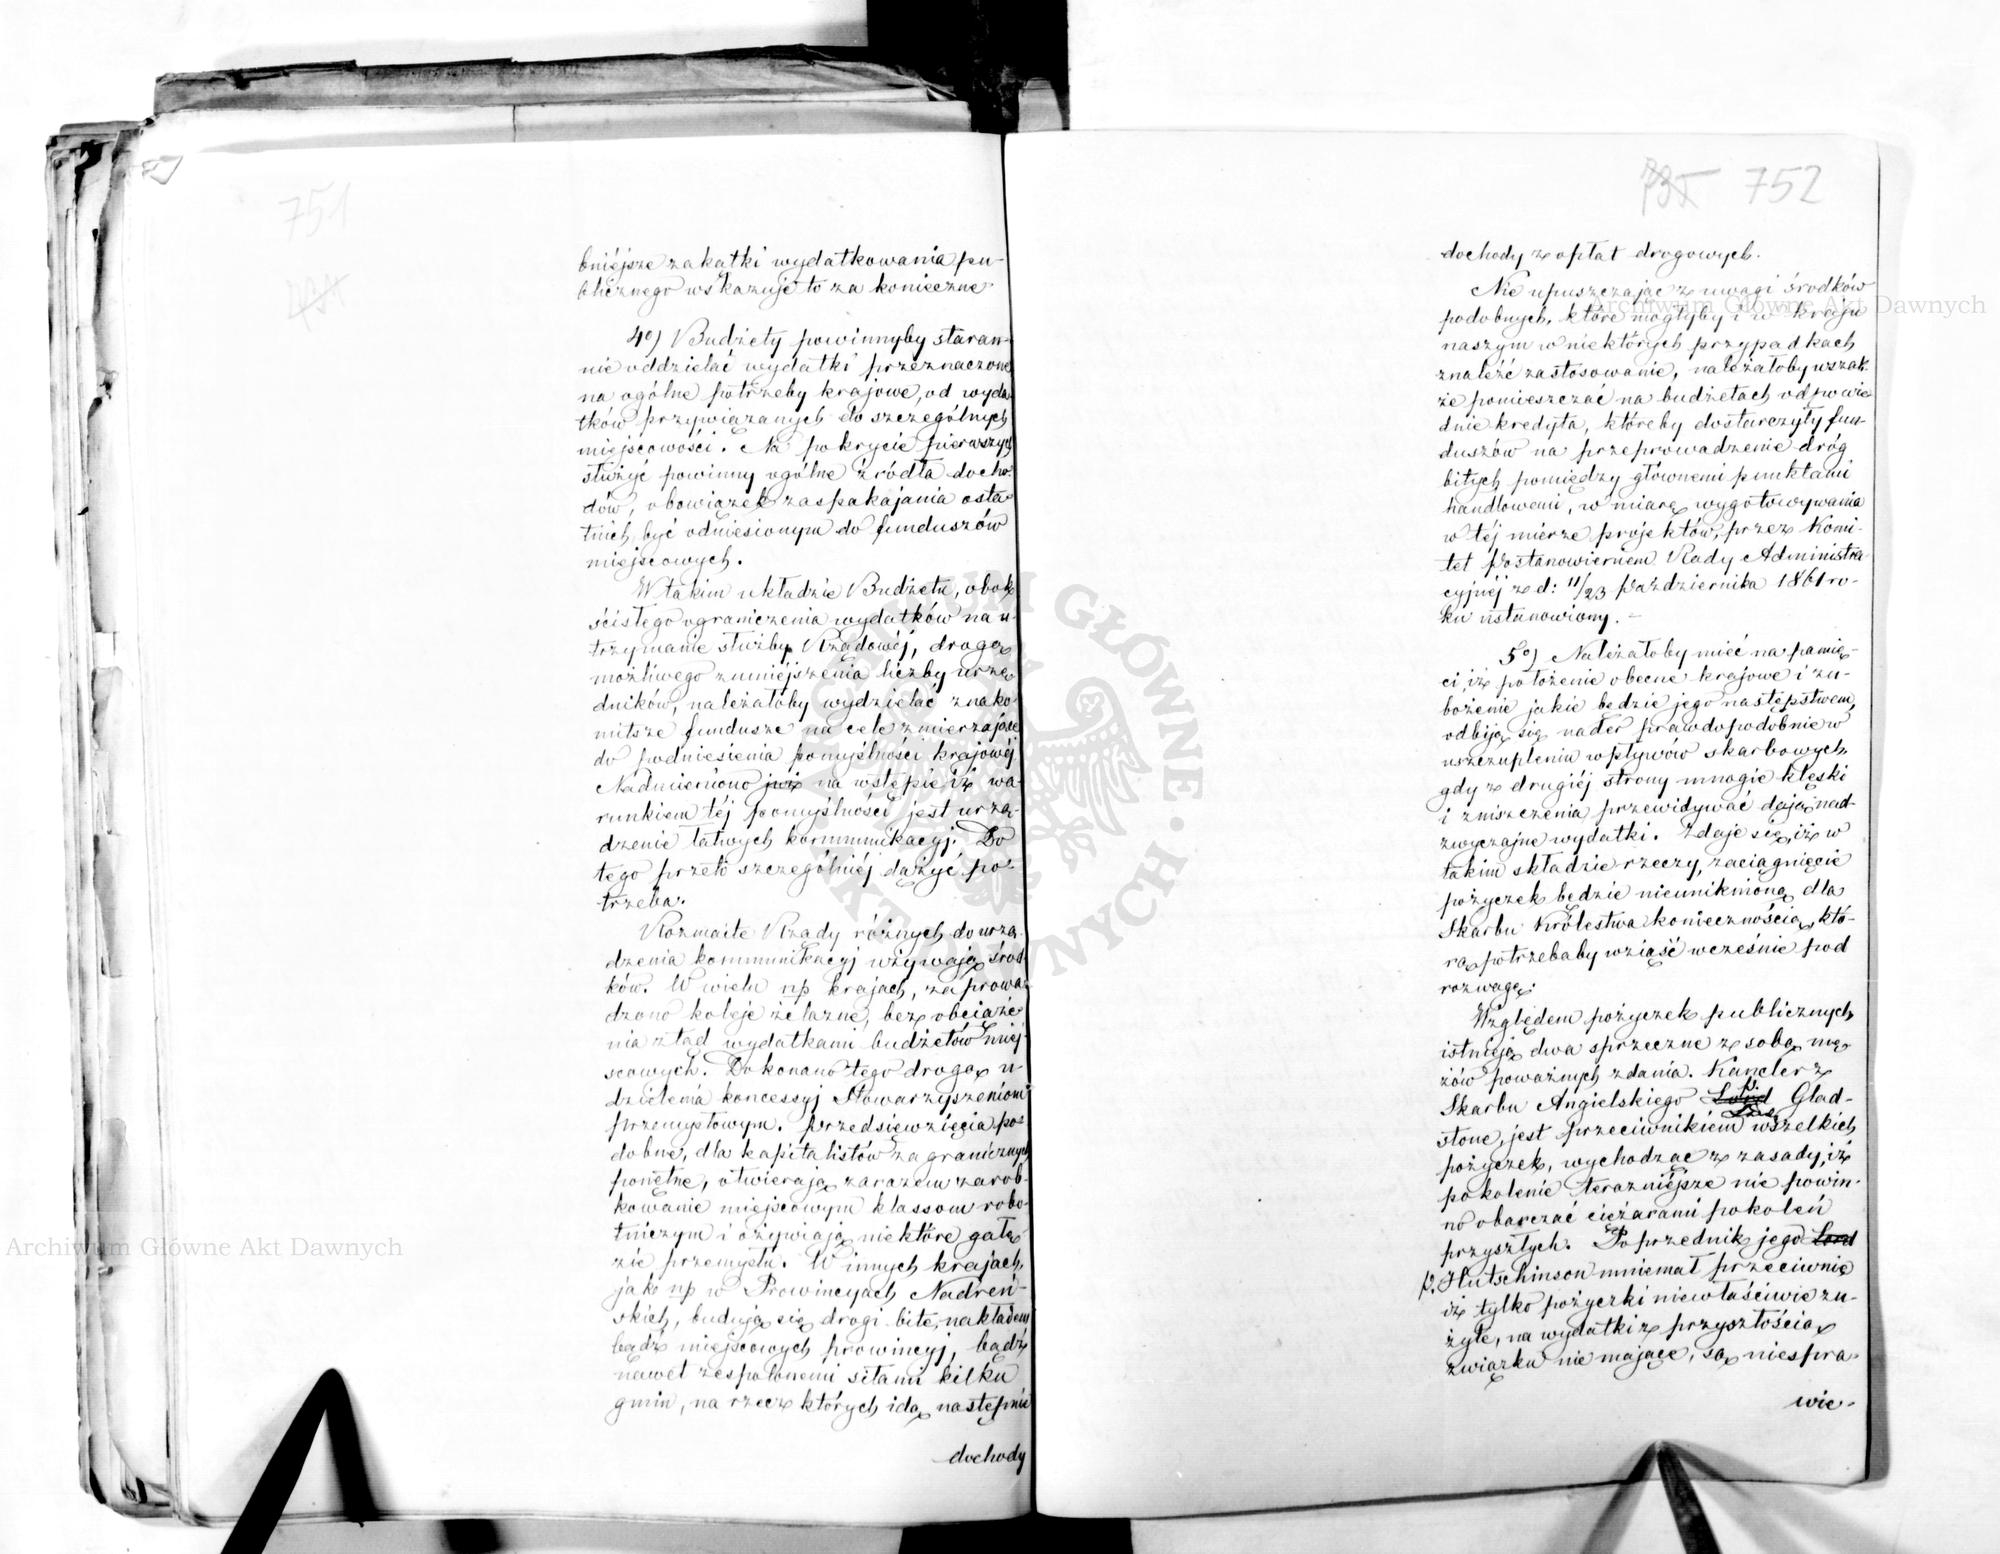 751
bniéjsze zakątki wydatkowania pu-
blicznego wskazuje to za konieczne
4o) Budżety powinnyby staran-
nie oddzielać wydatki przeznaczone
na ogólne potrzeby krajowe, od wyda-
tków przywiązanych do szczególnych
miejscowości. Na pokrycie pierwszych
służyć powinny ogólne źródła docho-
dów, obowiązek zaspakajania osta-
tnich być odniesionym do funduszów
miejscowych.
W takim układzie Budżetu, obok
ścisłego ograniczenia wydatków na u-
trzymanie służby Rządowéj, drogą
możliwego zmniéjszenia liczby urzę-
dników, należałoby wydzielać znako-
mitsze fundusze na cele zmierzające
do podniesienia pomyślności krajowéj
Nadmieniono już na wstępie iż wa-
runkiem téj pomyślności jest urzą-
dzenie łatwych kommunikacyj. Do
tego przeto szczególniéj dążyć po-
trzeba.
Rozmaite Rządy różnych do urzą-
dzenia kommunikacyj używają środ-
ków. W wielu np krajach, zaprowa-
dzono koleje żelazne, bez obciąże-
nia ztąd wydatkami budżetów miéj-
scowych. Dokonano tego drogą u-
dzielenia koncessyj Stowarzyszeniom
przemysłowym. Przedsięwzięcia po-
dobne, dla kapitalistów zagranicznych
ponętne, otwierają zarazem zarob-
kowanie miejscowym klassom robo-
tniczym i ożywiają niektóre gałę-
zie przemysłu. W innych krajach,
jak np w Prowincyach Nadreń-
skich, budują się drogi bite, nakładem
bądź miejscowych prowincyj, bądź
nawet zespolonemi siłami kilku
gmin, na rzecz których idą następnie
dochody
752
dochody z opłat drogowych.
Nie upuszczając z uwagi środków
podobnych, które mogłyby i w kraju
naszym w niektórych przypadkach
znaleźć zastosowanie, należałoby wszak-
że pomieszczać na budżetach odpowie-
dnie kredyta, któreby dostarczyły fun-
duszów na przeprowadzenie dróg
bitych pomiędzy głównemi punktami
handlowemi, w miarę wygotowywania
w téj mierze projektów, przez Komi-
tet Postanowieniem Rady Administra-
cyjnéj z d: 11/23 Października 1861 ro-
ku ustanowiony. –
5o) Należałoby mieć na pamię-
ci, iż położenie obecne krajowe i zu-
bożenie jakie będzie jego następstwem,
odbiją się nader prawdopodobnie w
uszczupleniu wpływów skarbowych,
gdy z drugiéj strony mnogie klęski
i zniszczenia przewidywać dają nad-
zwyczajne wydatki. Zdaje się, iż w
takim składzie rzeczy, zaciągnięcie
pożyczek będzie nieuniknioną dla
Skarbu Królestwa koniecznością, któ-
rą potrzebaby wziąść wcześnie pod
rozwagę.
Względem pożyczek publicznych,
istnieją dwa sprzeczne z sobą mę-
żów poważnych zdania. Kanclerz
Skarbu Angielskiego Lord p. Glad-
stone, jest przeciwnikiem wszelkich
pożyczek, wychodząc z zasady, iż
pokolenie teraźniejsze nie powin-
no obarczać ciężarami pokoleń
przyszłych. Poprzednik jego Lord
p. Hutschinson mniemał przeciwnie
iż tylko pożyczki niewłaściwie zu-
żyte, na wydatki z przyszłością
związku nie mające, są niespra-
wie-
Archiwum Główne Akt Dawnych
Archiwum Główne Akt Dawnych